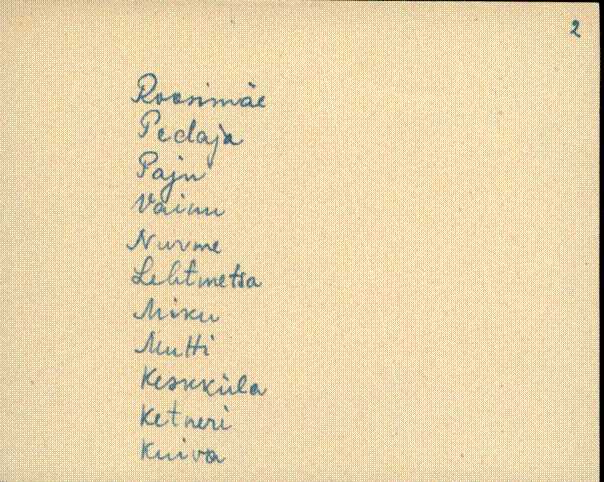 2
Roosimäe
Pedaja
Paju
Vaimu
Nurme
Lehtmetsa
Miku
Mutti
Keskküla
Ketneri
Kuiva